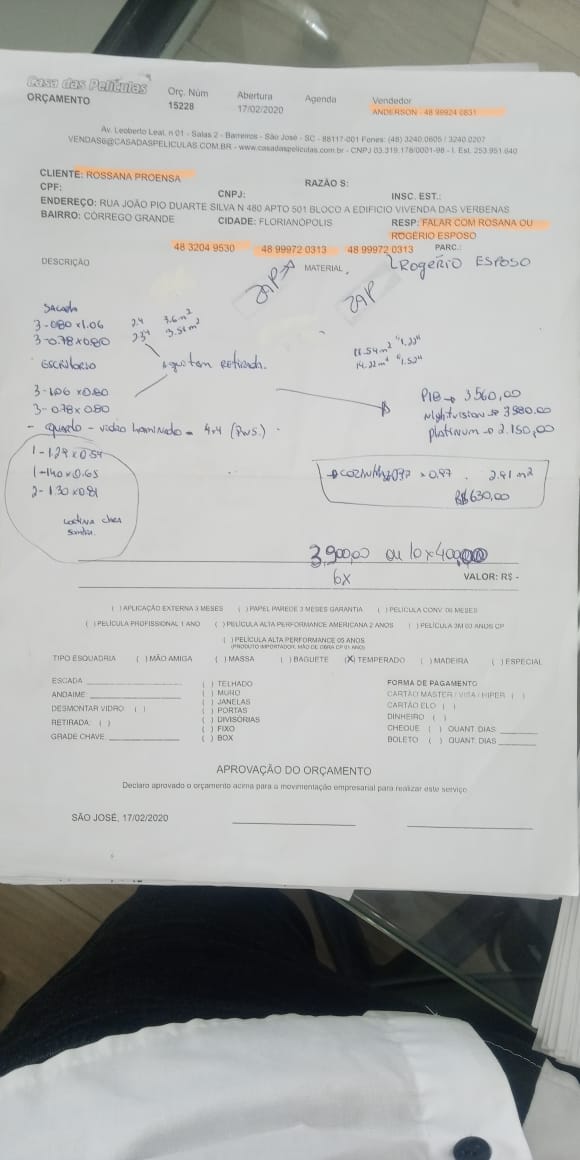 Casa das Películas
ORÇAMENTO
Orç. Núm
15228
Abertura
17/02/2020
Agenda
Vendedor
ANDERSON - 48 99924 0831
Av. Leoberto Leal, n 01 - Salas 2 - Barreiros - São José - SC - 88117-001 Fones: (48) 3240.0605 / 3240.0207
VENDAS6@CASADASPELICULAS.COM.BR - www.casadaspeliculas.com.br - CNPJ 03.319.178/0001-98 - I. Est. 253.951.640
CLIENTE: ROSSANA PROENSA
RAZÃO S:
CPF:
CNPJ:
INSC. EST.:
ENDEREÇO: RUA JOÃO PIO DUARTE SILVA N 480 APTO 501 BLOCO A EDIFICIO VIVENDA DAS VERBENAS
BAIRRO: CÓRREGO GRANDE
CIDADE: FLORIANÓPOLIS
RESP: FALAR COM ROSANA OU
ROGÉRIO ESPOSO
48 3204 9530
48 99972 0313
48 99972 0313
PARC.:
DESCRIÇÃO
ZAP
MATERIAL
ZAP
ROGÉRIO ESPOSO
SACADA
3-080x1.06 2.4 3.6m²
3-0.78x0.80
ESCRITORIO
3-1.06 x0.80
3-078x080
- quarto - vidro laminado - 4x4
1-1.29x0.54
1-140x0.65
2-1.30x0.81
18.54m² "1.22"
14.22m² "1.52"
P18 → 3560,00
Nightvision → 3980.00
Platinum → 2.150,00
x 0.97 . 2.91 m²
R$ 630,00
3.900,00 ou 10x400,00
6x
VALOR: R$ -
( ) APLICAÇÃO EXTERNA 3 MESES ( ) PAPEL PAREDE 3 MESES GARANTIA ( ) PELICULA CONV. 06 MESES
( ) PELÍCULA PROFISSIONAL 1 ANO ( ) PELÍCULA ALTA PERFORMANCE AMERICANA 2 ANOS ( ) PELÍCULA 3M 03 ANOS CP
( ) PELÍCULA ALTA PERFORMANCE 05 ANOS
(PRODUTO IMPORTADOR, MÃO DE OBRA CP 01 ANO)
TIPO ESQUADRIA ( ) MÃO AMIGA ( ) MASSA ( ) BAGUETE (X) TEMPERADO ( ) MADEIRA ( ) ESPECIAL
ESCADA
ANDAIME:
DESMONTAR VIDRO ( )
RETIRADA: ( )
GRADE CHAVE
( ) TELHADO
( ) MURO
( ) JANELAS
( ) PORTAS
( ) DIVISÓRIAS
( ) FIXO
( ) BOX
FORMA DE PAGAMENTO
CARTÃO MASTER / VISA / HIPER ( )
CARTÃO ELO ( )
DINHEIRO ( )
CHEQUE ( ) QUANT. DIAS
BOLETO ( ) QUANT. DIAS
APROVAÇÃO DO ORÇAMENTO
Declaro aprovado o orçamento acima para a movimentação empresarial para realizar este serviço
SÃO JOSÉ, 17/02/2020